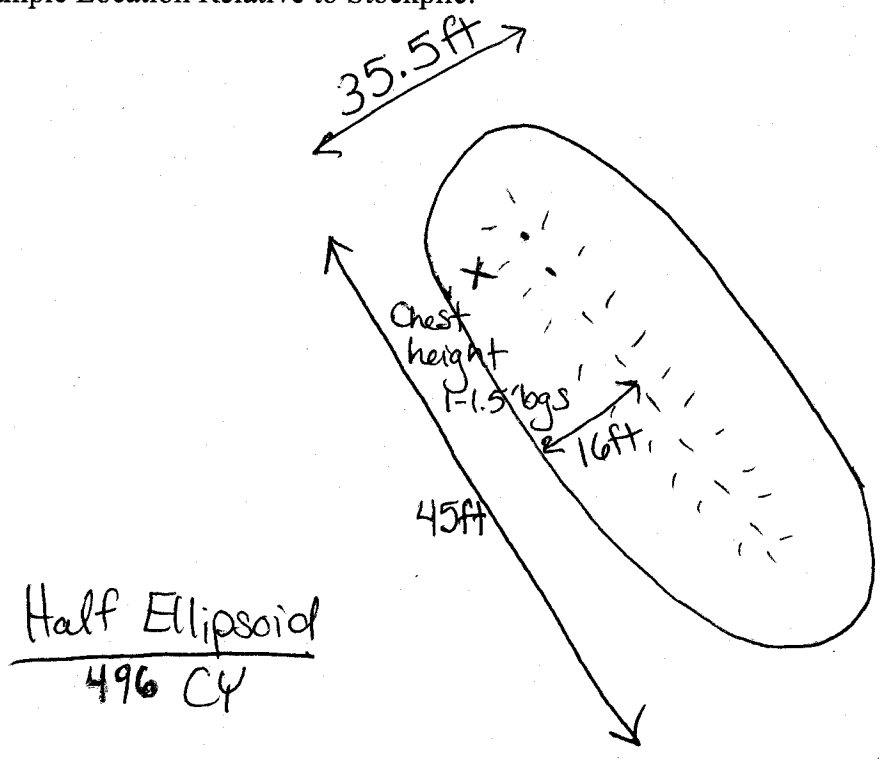 Sample Location Relative to Stockpile:
35.5ft
X
Chest
height
1-1.5' bgs
16ft
45ft
Half Ellipsoid
496 CY